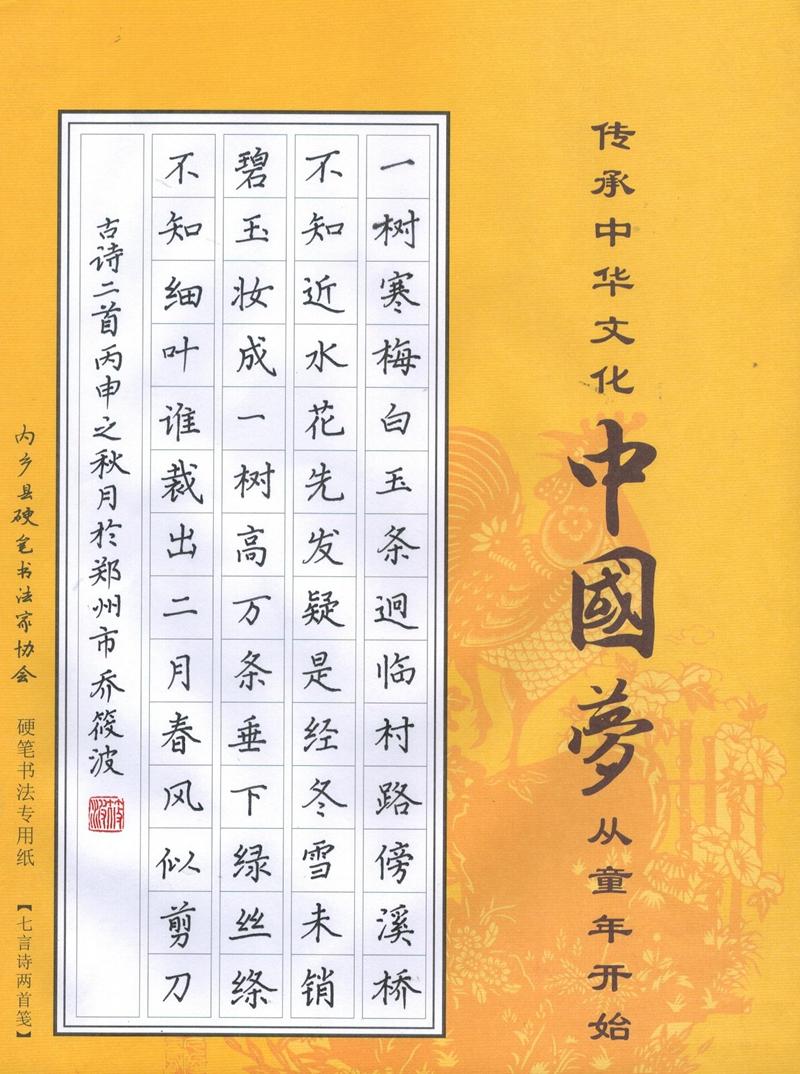 传承中华文化
中國夢
从童年开始
一树寒梅白玉条迥临村路傍溪桥
不知近水花先发疑是经冬雪未销
碧玉妆成一树高万条垂下绿丝绦
不知细叶谁裁出二月春风似剪刀
古诗二首丙申之秋月于郑州市乔筱波
内乡县硬笔书法家协会
硬笔书法专用纸
【七言诗两首笺】